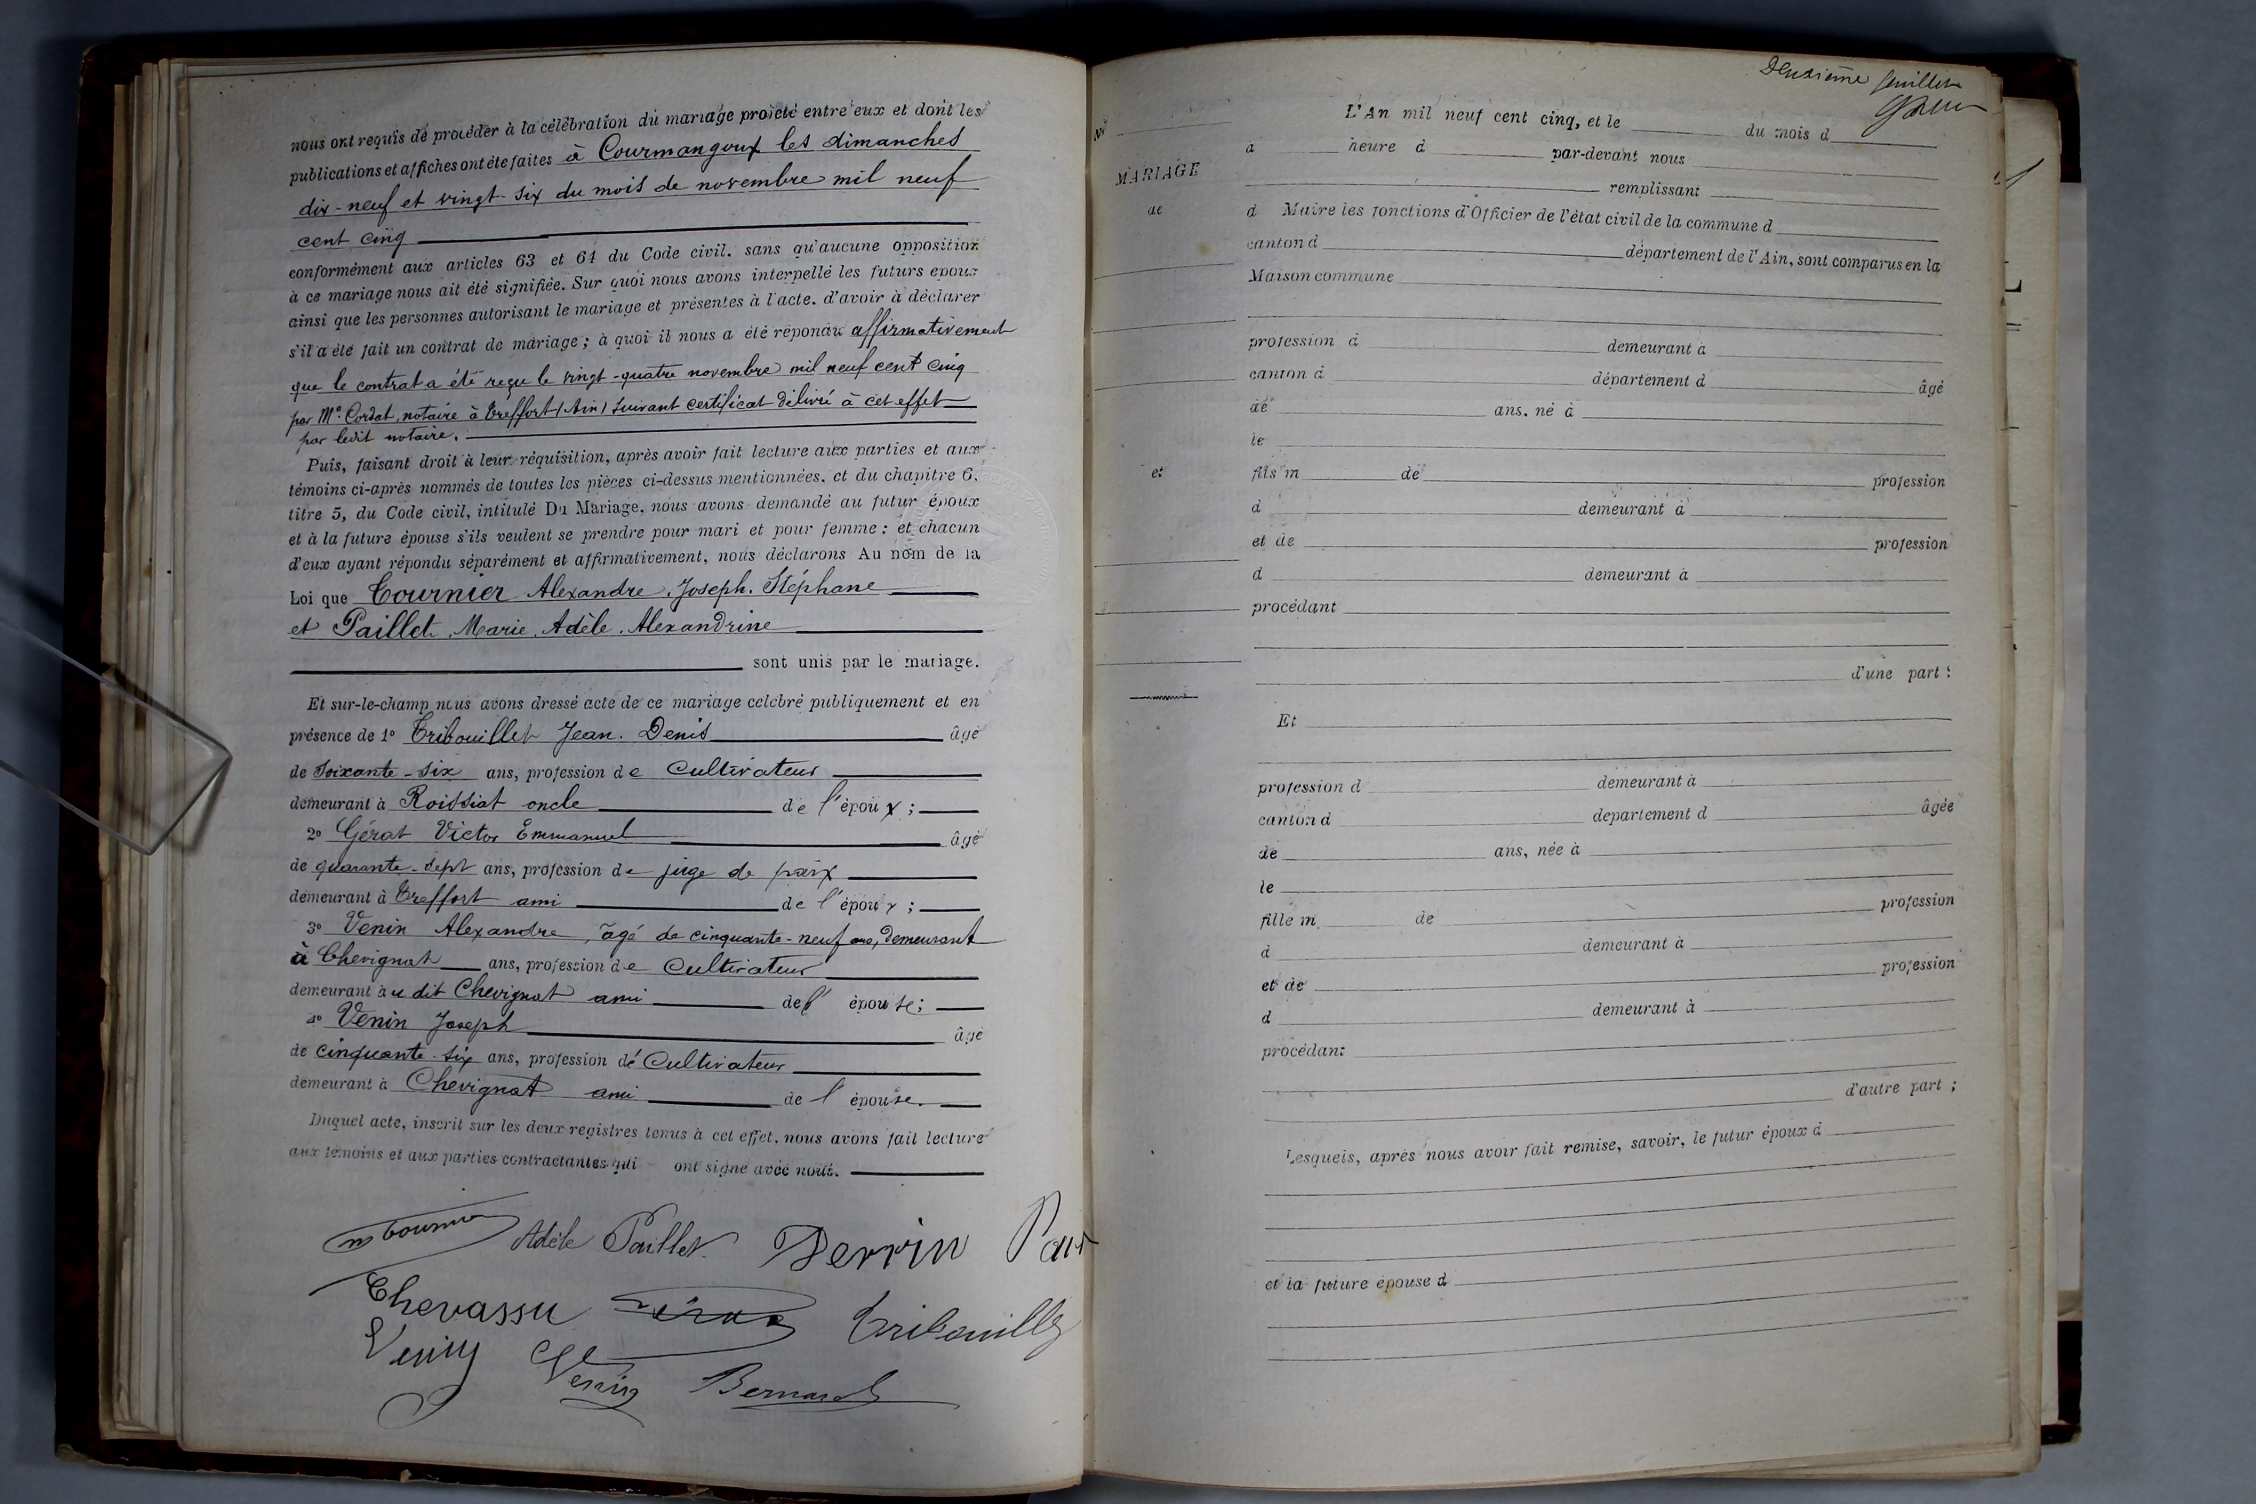 nous ont requis de procéder à la célébration du mariage projeté entre eux et dont les
publications et affiches ont été faites à Courmangoux les dimanches
dix-neuf et vingt-six du mois de novembre mil neuf
cent cinq
conformément aux articles 63 et 64 du Code civil, sans qu'aucune opposition
à ce mariage nous ait été signifiée. Sur quoi nous avons interpellé les futurs époux
ainsi que les personnes autorisant le mariage et présentes à l'acte, d'avoir à déclarer
s'il a été fait un contrat de mariage ; à quoi il nous a été répondu affirmativement
que le contrat a été reçu le vingt-quatre novembre mil neuf cent cinq
par Me Cordat, notaire à Treffort (Ain) suivant certificat délivré à cet effet
par ledit notaire.
Puis, faisant droit à leur réquisition, après avoir fait lecture aux parties et aux
témoins ci-après nommés de toutes les pièces ci-dessus mentionnées, et du chapitre 6,
titre 5, du Code civil, intitulé Du Mariage, nous avons demandé au futur époux
et à la future épouse s'ils veulent se prendre pour mari et pour femme ; et chacun
d'eux ayant répondu séparément et affirmativement, nous déclarons Au nom de la
Loi que Tournier Alexandre, Joseph, Stéphane
et Paillet, Marie, Adèle, Alexandrine
sont unis par le mariage.
Et sur-le-champ nous avons dressé acte de ce mariage célébré publiquement et en
présence de 1° Tribouillet Jean. Denis âgé
de soixante-six ans, profession de cultivateur
demeurant à Roissiat oncle de l'époux ;
2° Gérat Victor Emmanuel âgé
de quarante-sept ans, profession de juge de paix
demeurant à Treffort ami de l'époux ;
3° Venin Alexandre, âgé de cinquante-neuf ans, demeurant
à Chevignat ans, profession de cultivateur
demeurant au dit Chevignat ami de l' épouse ;
4° Venin Joseph âgé
de cinquante-six ans, profession de cultivateur
demeurant à Chevignat ami de l' épouse.
Duquel acte, inscrit sur les deux registres tenus à cet effet, nous avons fait lecture
aux témoins et aux parties contractantes qui ont signé avec nous.
Tournier Adèle Paillet Perrin Paul
Chevassu Gérat Tribouillet
Venin Venin Bernard
Deuxième feuillet
N°
MARIAGE
de
et
L'An mil neuf cent cinq, et le du mois d
à heure d par-devant nous
remplissant
d Maire les fonctions d'Officier de l'état civil de la commune d
canton d département de l'Ain, sont comparus en la
Maison commune
profession d demeurant à
canton d département d âgé
de ans, né à
le
fils m de profession
d demeurant à
et de profession
d demeurant à
procédant
d'une part ;
Et
profession d demeurant à
canton d département d âgée
de ans, née à
le
fille m de profession
d demeurant à
et de profession
d demeurant à
procédant
d'autre part ;
Lesquels, après nous avoir fait remise, savoir, le futur époux d
et la future épouse d